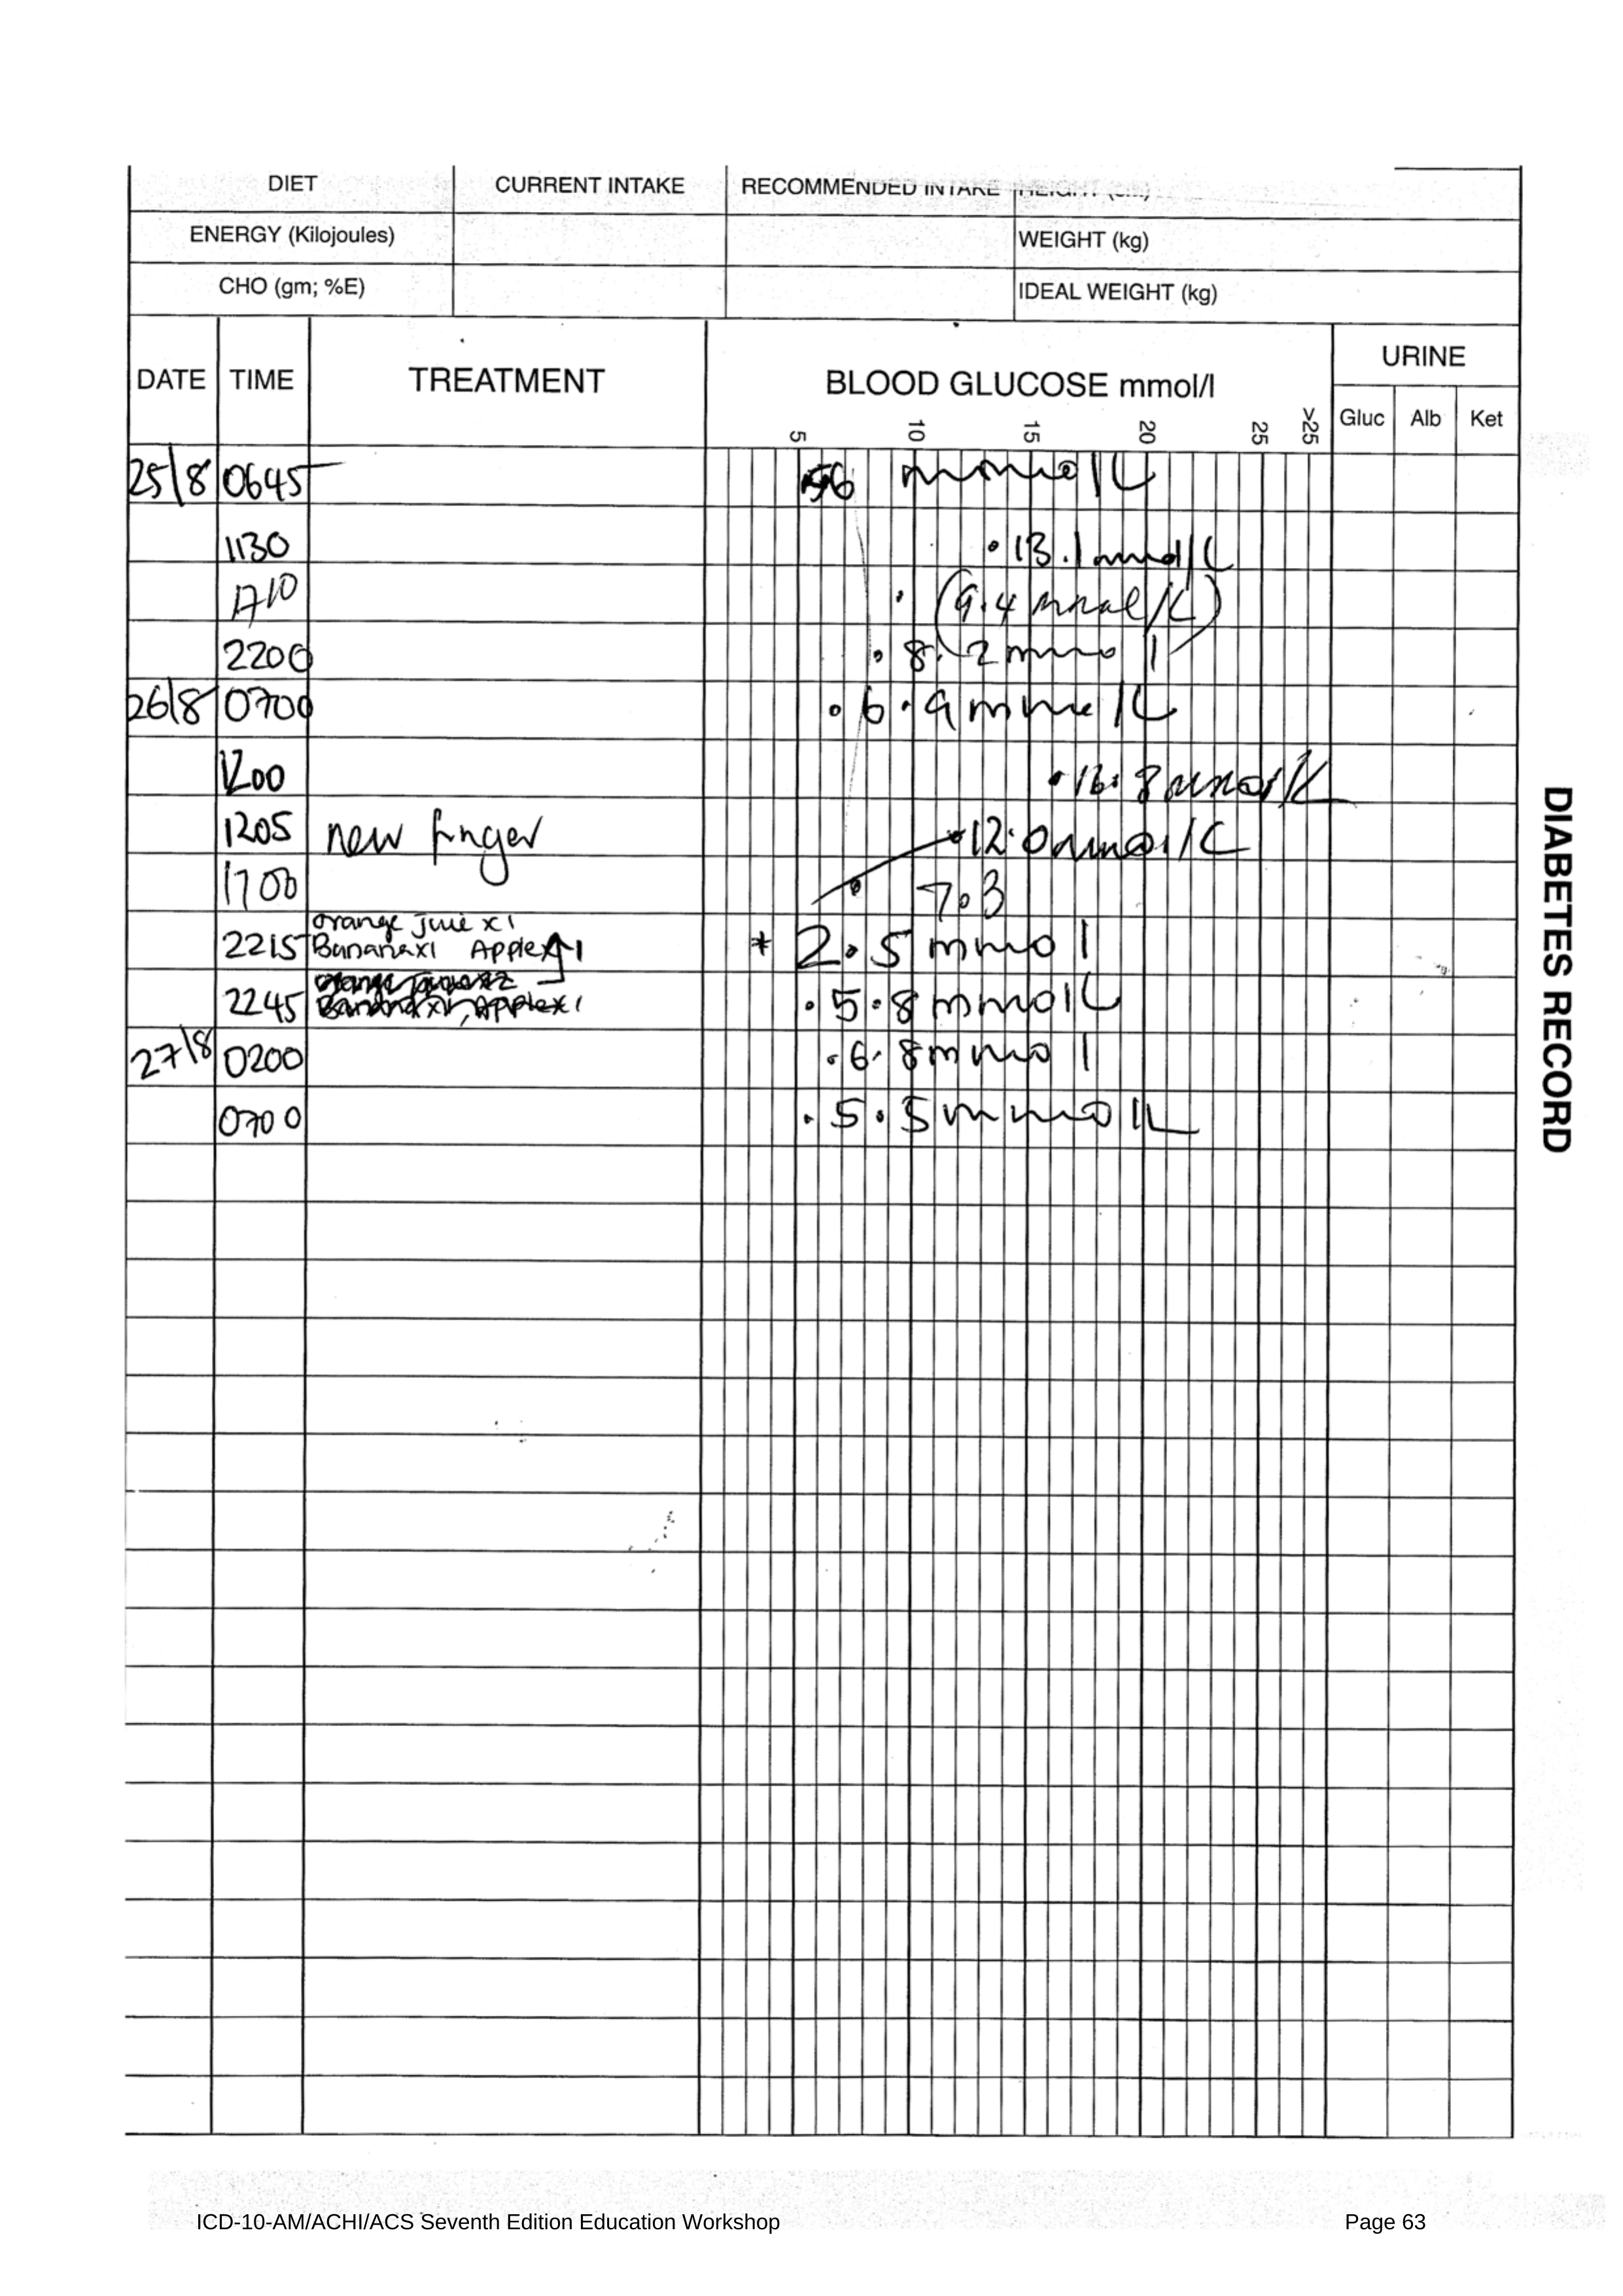 DIET CURRENT INTAKE RECOMMENDED INTAKE HEIGHT (cm)
ENERGY (Kilojoules) WEIGHT (kg)
CHO (gm; %E) IDEAL WEIGHT (kg)
DATE TIME TREATMENT BLOOD GLUCOSE mmol/l URINE
5 10 15 20 25 >25 Gluc Alb Ket
25/8 0645 56 mmol/L
1130 13.1 mmol/L
1710 (9.4 mmol/L)
2200 8.2 mmol
26/8 0700 6.9 mmol/L
1200 16.8 mmol/L
1205 new finger 12.0 mmol/L
1700 7.3
orange juie x1
2215 Banana x1 Apple x1 * 2.5 mmol
2245 Banana x1, Apple x1 5.8 mmol/L
27/8 0200 6.8 mmol
0700 5.5 mmol/L
DIABETES RECORD
ICD-10-AM/ACHI/ACS Seventh Edition Education Workshop Page 63